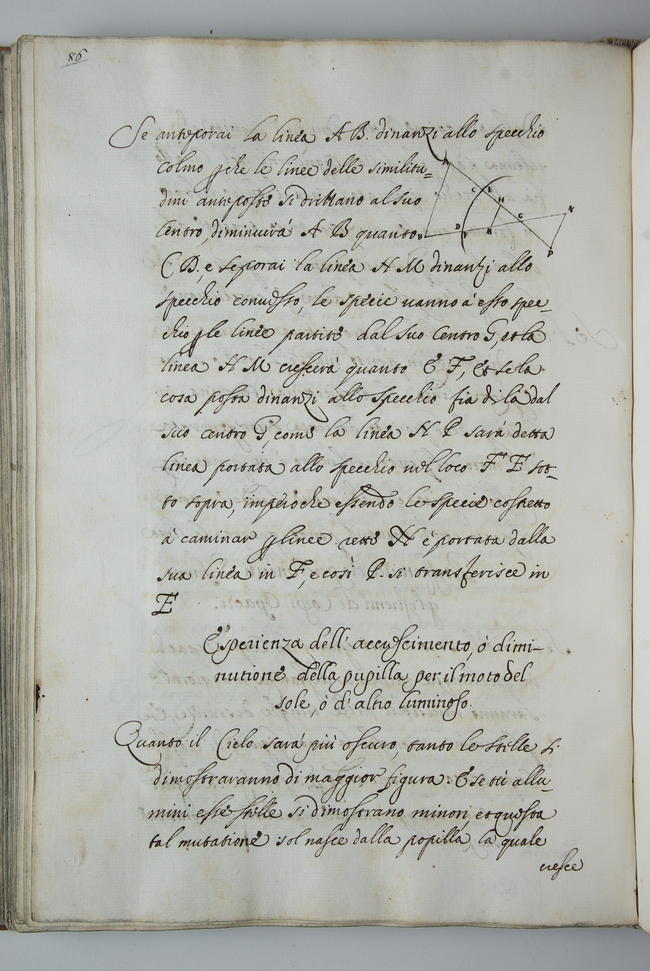 86
Se anteporai la linea A B. dinanzi allo specchio
colmo ꝑche le linee delle similitu=
dini anteposte si drittano al suo
Centro, diminuirá A B quanto
C D, e se porai la linea H M dinanzi allo
specchio conuesso, le specie uanno á esso spec=
chio ꝑ le linee partite dal suo centro G, et la
linea H M crescerá quanto E F, et se la
cosa posta dinanzi allo specchio fia di lá dal
suo centro G, come la linea N P sará detta
linea portata allo specchio nel loco F E sot=
to sopra, imperoche essendo le specie costrette
á caminar ꝑ linee rette N é portata dalla
sua linea in F, e così P. si transferisce in
E
Esperienza dell' accrescimento, ó dimi=
nutione della pupilla per il moto del
sole, ó d' altro luminoso.
Quanto il Cielo sará piú oscuro, tanto le stelle si
dimostraranno di maggior figura. E se tú allu=
mini esse stelle si dimostrano minori, et questa
tal mutatione sol nasce dalla popilla, la quale
cresce